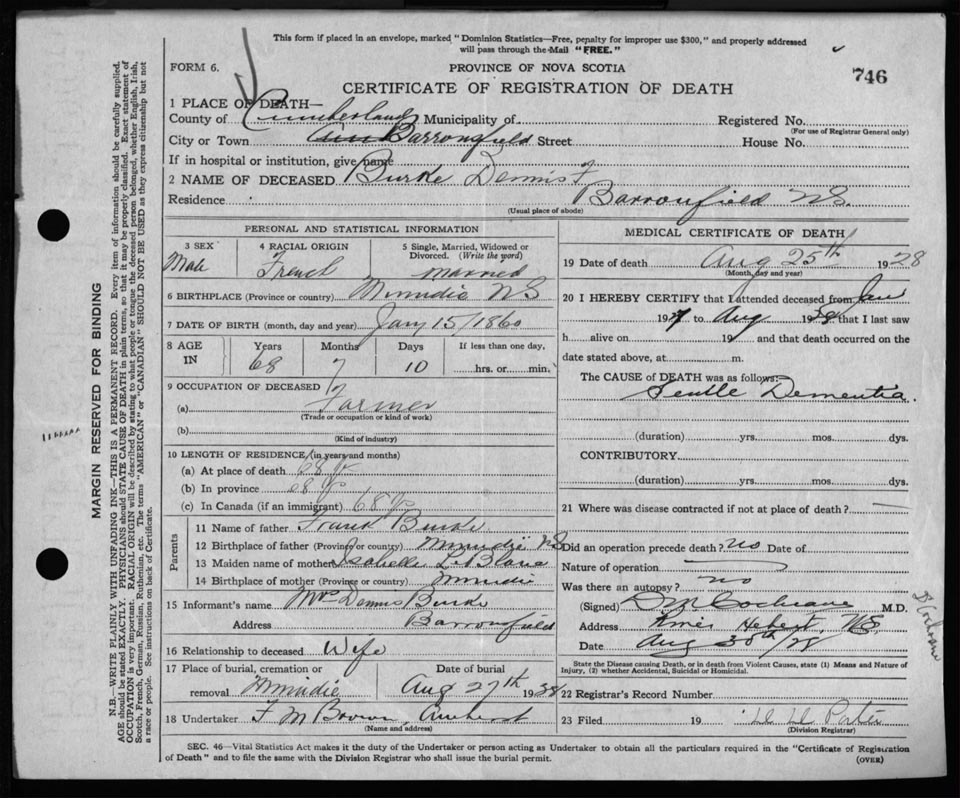 This form if placed in an envelope, marked "Dominion Statistics—Free, penalty for improper use $300," and properly addressed
will pass through the Mail "FREE."
FORM 6.
PROVINCE OF NOVA SCOTIA
746
CERTIFICATE OF REGISTRATION OF DEATH
1 PLACE OF DEATH—
County of Cumberland Municipality of Registered No.
(For use of Registrar General only)
City or Town Barronsfield Street House No.
If in hospital or institution, give name
2 NAME OF DECEASED Burke Dennis F
Residence Barronsfield NS.
(Usual place of abode)
PERSONAL AND STATISTICAL INFORMATION
3 SEX 4 RACIAL ORIGIN 5 Single, Married, Widowed or
Divorced. (Write the word)
Male French married
6 BIRTHPLACE (Province or country) Minudie NS
7 DATE OF BIRTH (month, day and year) Jany 15/1860
8 AGE IN Years Months Days If less than one day,
68 7 10 hrs. or min.
9 OCCUPATION OF DECEASED
(a) Farmer
(Trade or occupation or kind of work)
(b)
(Kind of industry)
10 LENGTH OF RESIDENCE (in years and months)
(a) At place of death 68 yr
(b) In province 68 yrs
(c) In Canada (if an immigrant) 68 yrs
Parents
11 Name of father Frank Burke
12 Birthplace of father (Province or country) Minudie NS
13 Maiden name of mother Isabella LeBlanc
14 Birthplace of mother (Province or country) Minudie
15 Informant's name Mrs Dennis Burke
Address Barronsfield
16 Relationship to deceased Wife
17 Place of burial, cremation or Date of burial
removal Minudie Aug 27th 1928
18 Undertaker F M Brown, Amherst
(Name and address)
MEDICAL CERTIFICATE OF DEATH
19 Date of death Aug 25th 1928
(Month, day and year)
20 I HEREBY CERTIFY that I attended deceased from Jan
192 to Aug 1928 that I last saw
h alive on 19 and that death occurred on the
date stated above, at m.
The CAUSE of DEATH was as follows:
Senile Dementia.
(duration) yrs. mos. dys.
CONTRIBUTORY.
(duration) yrs. mos. dys.
21 Where was disease contracted if not at place of death?
Did an operation precede death? no Date of
Nature of operation
Was there an autopsy? no
(Signed) D M Cochrane M.D.
Address River Hebert NS
Date Aug 30th/28
D Cochrane
State the Disease causing Death, or in death from Violent Causes, state (1) Means and Nature of
Injury, (2) whether Accidental, Suicidal or Homicidal.
22 Registrar's Record Number
23 Filed 19 Porter
(Division Registrar)
SEC. 46—Vital Statistics Act makes it the duty of the Undertaker or person acting as Undertaker to obtain all the particulars required in the "Certificate of Registration
of Death" and to file the same with the Division Registrar who shall issue the burial permit. (OVER)
MARGIN RESERVED FOR BINDING
N.B.—WRITE PLAINLY WITH UNFADING INK—THIS IS A PERMANENT RECORD. Every item of information should be carefully supplied.
AGE should be stated EXACTLY. PHYSICIANS should STATE CAUSE OF DEATH in plain terms, so that it may be properly classified. Exact statement of
OCCUPATION is very important. RACIAL ORIGIN will be described by stating to what people or tongue the deceased person belonged, whether English, Irish,
Scotch, French, German, Russian, Ruthenian, etc. The terms "AMERICAN" or "CANADIAN" SHOULD NOT BE USED as they express citizenship but not
a race or people. See instructions on back of Certificate.